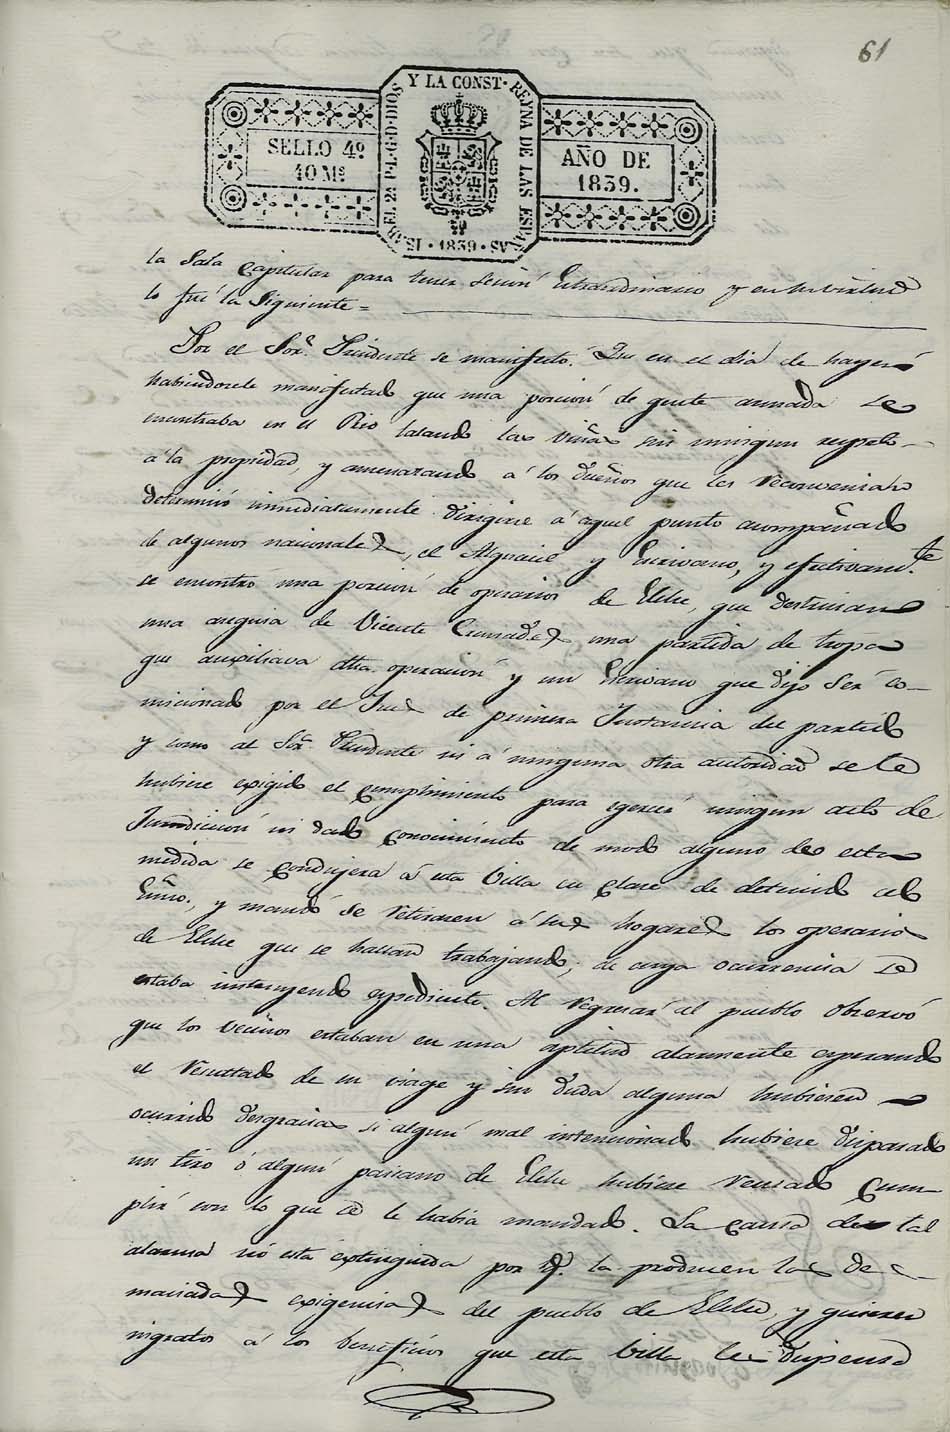 61
SELLO 4º
40 Mˢ
ISABEL 2ª P. L. G. D. DIOS Y LA CONST. REYNA DE LAS ESPAÑAS
1839
AÑO DE
1839.
la Sala Capitular para tener sesion Extraordinario y en su virtud
lo fué la Siguiente =
Por el Sor. Presidente se manifestó: Que en el dia de hayer
habiendosele manifestado que una porcion de gente armada se
encontraba en el Rio talando las viñas sin ningun respeto
á la propiedad, y amenazando á los dueños que les reconvenian
determinó inmediatamente dirigirse á aquel punto acompañado
de algunos nacionales, el Alguacil y Escrivano, y efectivamte.
se encontró una porcion de operarios de Elche, que destruian
una azequia de Vicente una partida de tropa
que auxiliava dha. operacion y un Escrivano que dijo Ser co-
micionado por el Juez de primera Instancia del partido
y como al Sor. Presidente ni á ninguna otra autoridad se le
hubiese exigido el cumplimiento para egercer ningun acto de
Jurisdiccion ni dado conocimiento de modo alguno de esta
medida se condujera á esta Villa en clase de detenido al
Essno., y mandó se retirasen á sus hogares los operarios
de Elche que se hallan trabajando, de cuya ocurrencia se
estaba instruyendo expediente. Al regresar al pueblo observó
que los vecinos estaban en una aptitud alarmente esperando
el resultado de su viage y sin duda alguna hubieren
ocurrido desgracias si algun mal intencionado hubiese disparado
un tiro ó algun paisano de Elche hubiese reusado cum-
plir con lo que se le habia mandado. La causa de tal
alarma nó está extinguida por q. la producen las de-
maciadas exigencias del pueblo de Elche, y quienes
ingratos á los beneficios que esta Villa les dispensa